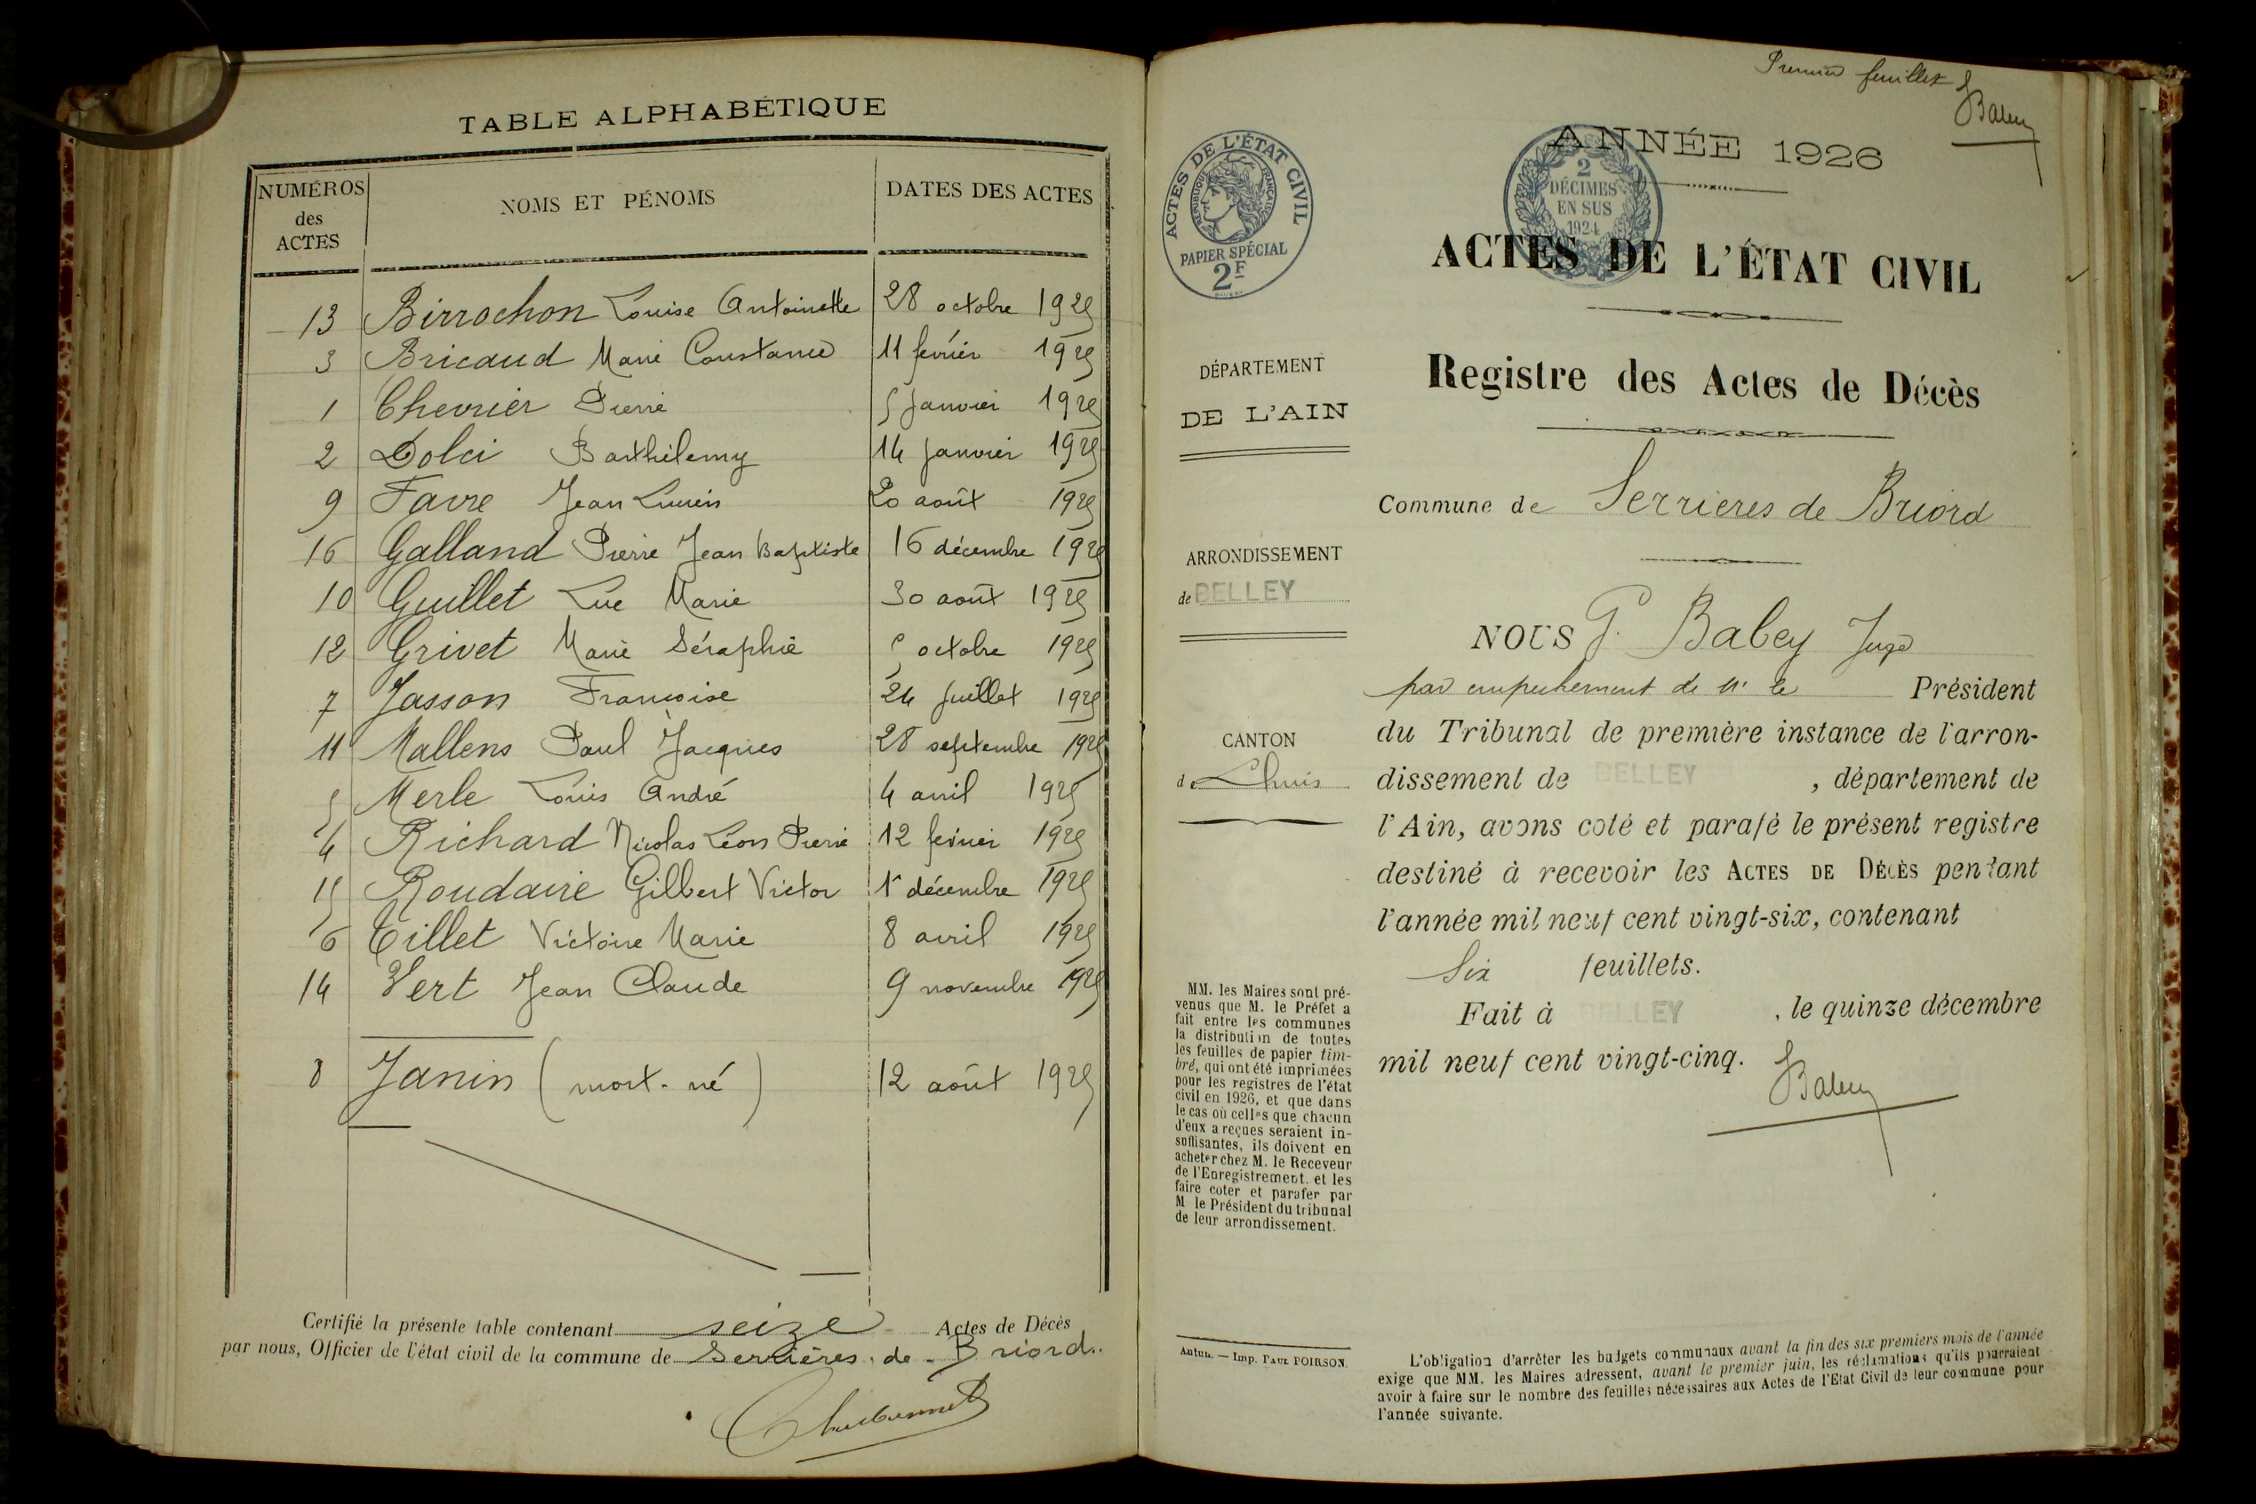 TABLE ALPHABÉTIQUE
NUMÉROS des ACTES
NOMS ET PÉNOMS
DATES DES ACTES
13 Birrochon Louise Antoinette 28 octobre 1925
3 Bricaud Marie Constance 11 février 1925
1 Chevrier Pierre 5 Janvier 1925
2 Dolci Barthélemy 14 Janvier 1925
9 Favre Jean Lucien 20 août 1925
16 Galland Pierre Jean Baptiste 16 décembre 1925
10 Guillet Marie 30 août 1925
12 Grivet Marie Séraphie 5 octobre 1925
7 Jasson Françoise 24 Juillet 1925
11 Mallens Paul Jacques 28 septembre 1925
5 Merle Louis André 4 avril 1925
4 Richard Nicolas Léon Pierre 12 février 1925
15 Roudaire Gilbert Victor 1r décembre 1925
6 Tillet Victoire Marie 8 avril 1925
14 Vert Jean Claude 9 novembre 1925
8 Janin (mort-né) 12 août 1925
Certifié la présente table contenant seize Actes de Décès
par nous, Officier de l'état civil de la commune de Serrières de Briord.
Premier feuillet
Babey
ACTES DE L'ÉTAT CIVIL
RÉPUBLIQUE FRANÇAISE
PAPIER SPÉCIAL
2F
2
DÉCIMES
EN SUS
1924
ANNÉE 1926
ACTES DE L'ÉTAT CIVIL
Registre des Actes de Décès
DÉPARTEMENT
DE L'AIN
ARRONDISSEMENT
de BELLEY
CANTON
de Lhuis
Commune de Serrières de Briord
NOUS G. Babey Juge
par empêchement de M. le Président
du Tribunal de première instance de l'arron-
dissement de BELLEY, département de
l'Ain, avons coté et parafé le présent registre
destiné à recevoir les ACTES DE DÉCÈS pendant
l'année mil neuf cent vingt-six, contenant
Six feuillets.
Fait à BELLEY, le quinze décembre
mil neuf cent vingt-cinq.
Babey
MM. les Maires sont pré-
venus que M. le Préfet a
fait entre les communes
la distribution de toutes
les feuilles de papier tim-
bré, qui ont été imprimées
pour les registres de l'état
civil en 1926, et que dans
le cas où celles que chacun
d'eux a reçues seraient in-
suffisantes, ils doivent en
acheter chez M. le Receveur
de l'Enregistrement, et les
faire coter et parafer par
M le Président du tribunal
de leur arrondissement.
Autun. — Imp. PAUL POIRSON.
L'obligation d'arrêter les budgets communaux avant la fin des six premiers mois de l'année
exige que MM. les Maires adressent, avant le premier juin, les réclamations qu'ils pourraient
avoir à faire sur le nombre des feuilles nécessaires aux Actes de l'Etat Civil de leur commune pour
l'année suivante.